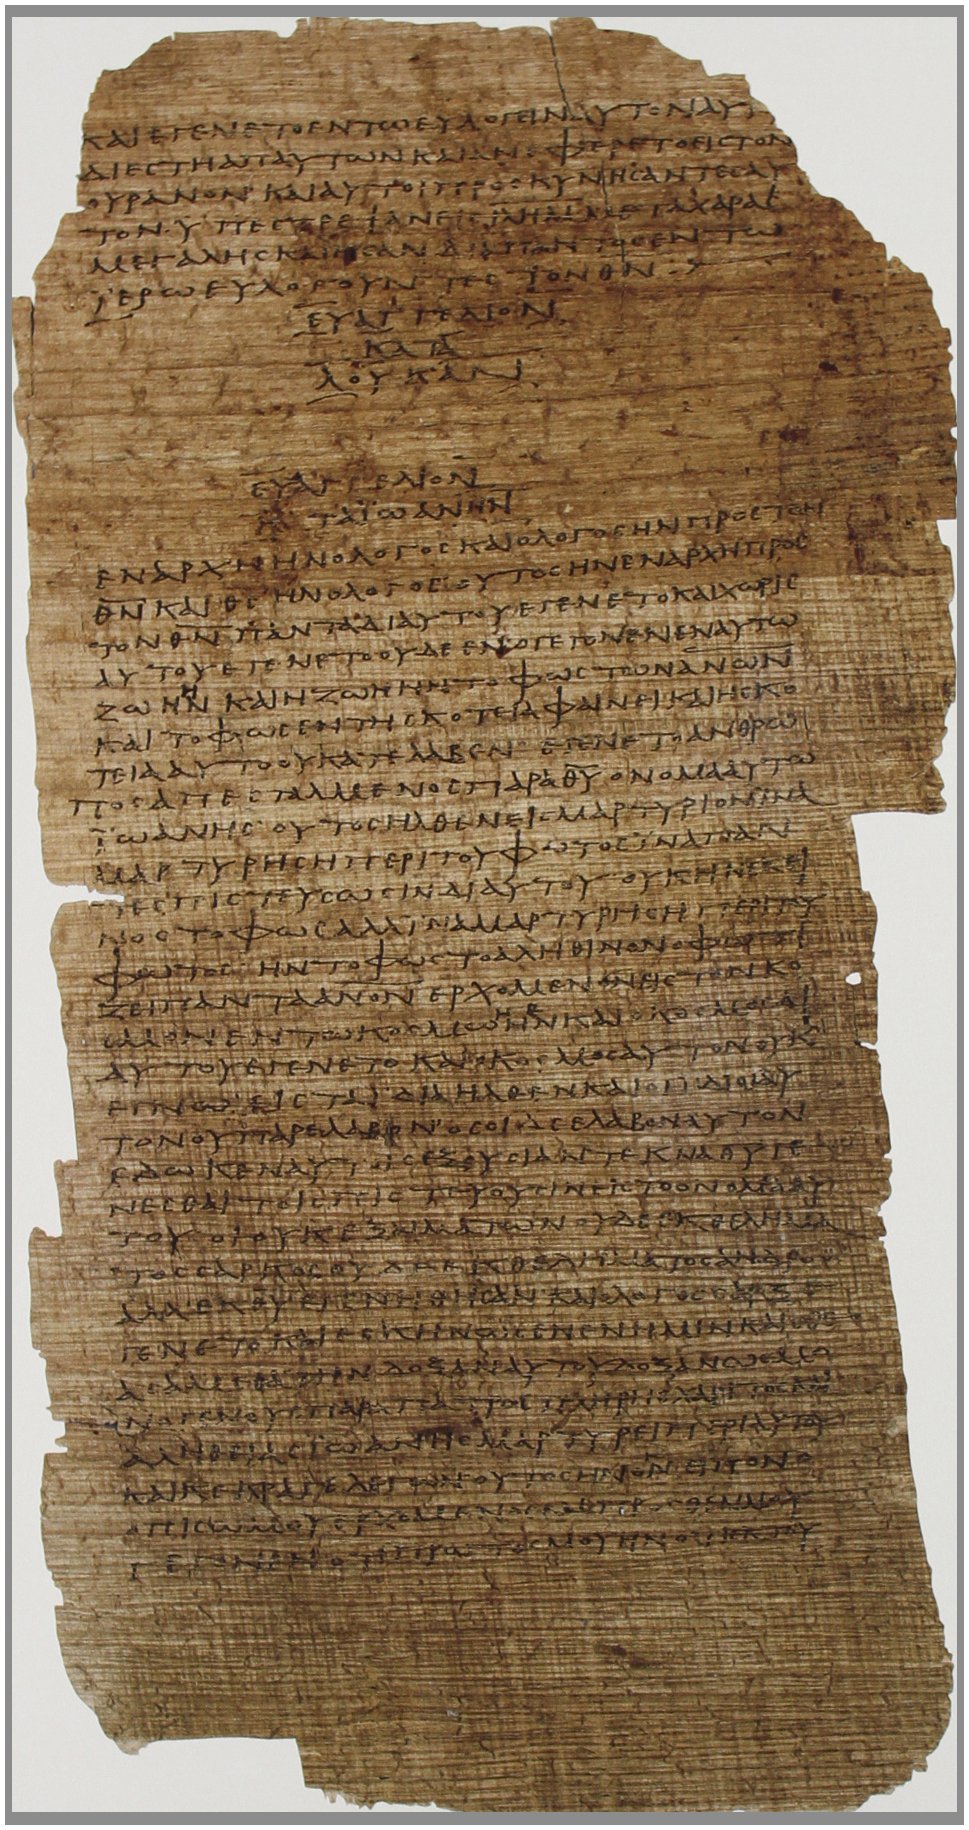 ΚΑΙ ΕΓΕΝΕΤΟ ΕΝ ΤΩ ΕΥΛΟΓΕΙΝ ΑΥΤΟΝ ΑΥΤ
ΔΙΕΣΤΗ ΑΠ ΑΥΤΩΝ ΚΑΙ ΑΝΕΦΕΡΕΤΟ ΕΙΣ ΤΟΝ
ΟΥΡΑΝΟΝ ΚΑΙ ΑΥΤΟΙ ΠΡΟΣΚΥΝΗΣΑΝΤΕΣ ΑΥ
ΤΟΝ ΥΠΕΣΤΡΕΨΑΝ ΕΙΣ ΜΕΤΑ ΧΑΡΑΣ
ΜΕΓΑΛΗΣ ΚΑΙ ΗΣΑΝ ΔΙΑΠΑΝΤΟΣ ΕΝ ΤΩ
ΪΕΡΩ ΕΥΛΟΓΟΥΝΤΕΣ ΤΟΝ Θ̅Ν̅
ΕΥΑΓΓΕΛΙΟΝ
ΚΑΤΑ
ΛΟΥΚΑΝ
ΕΥΑΓΓΕΛΙΟΝ
ΚΑΤΑ ΪΩΑΝΗΝ
ΕΝ ΑΡΧΗ ΗΝ Ο ΛΟΓΟΣ ΚΑΙ Ο ΛΟΓΟΣ ΗΝ ΠΡΟΣ ΤΟΝ
Θ̅Ν̅ ΚΑΙ Θ̅Σ̅ ΗΝ Ο ΛΟΓΟΣ ΟΥΤΟΣ ΗΝ ΕΝ ΑΡΧΗ ΠΡΟΣ
ΤΟΝ Θ̅Ν̅ ΠΑΝΤΑ ΔΙ ΑΥΤΟΥ ΕΓΕΝΕΤΟ ΚΑΙ ΧΩΡΙΣ
ΑΥΤΟΥ ΕΓΕΝΕΤΟ ΟΥΔΕ ΕΝ Ο ΓΕΓΟΝΕΝ ΕΝ ΑΥΤΩ
ΖΩΗ ΗΝ ΚΑΙ Η ΖΩΗ ΗΝ ΤΟ ΦΩΣ ΤΩΝ Α̅Ν̅Ω̅Ν̅
ΚΑΙ ΤΟ ΦΩΣ ΕΝ ΤΗ ΣΚΟΤΕΙΑ ΦΑΙΝΕΙ ΚΑΙ Η ΣΚΟ
ΤΕΙΑ ΑΥΤΟ ΟΥ ΚΑΤΕΛΑΒΕΝ ΕΓΕΝΕΤΟ ΑΝΘΡΩ
ΠΟΣ ΑΠΕΣΤΑΛΜΕΝΟΣ ΠΑΡΑ Θ̅Υ̅ ΟΝΟΜΑ ΑΥΤΩ
ΪΩΑΝΗΣ ΟΥΤΟΣ ΗΛΘΕΝ ΕΙΣ ΜΑΡΤΥΡΙΟΝ ΪΝΑ
ΜΑΡΤΥΡΗΣΗ ΠΕΡΙ ΤΟΥ ΦΩΤΟΣ ΪΝΑ ΠΑΝ
ΤΕΣ ΠΙΣΤΕΥΣΩΣΙΝ ΔΙ ΑΥΤΟΥ ΟΥΚ ΗΝ ΕΚΕΙ
ΝΟΣ ΤΟ ΦΩΣ ΑΛΛ ΪΝΑ ΜΑΡΤΥΡΗΣΗ ΠΕΡΙ ΤΟΥ
ΦΩΤΟΣ ΗΝ ΤΟ ΦΩΣ ΤΟ ΑΛΗΘΙΝΟΝ Ο ΦΩΤΙ
ΖΕΙ ΠΑΝΤΑ Α̅Ν̅Ο̅Ν̅ ΕΡΧΟΜΕΝΟΝ ΕΙΣ ΤΟΝ ΚΟ
ΣΜΟΝ ΕΝ ΤΩ ΚΟΣΜΩ ΗΝ ΚΑΙ Ο ΚΟΣΜΟΣ ΔΙ
ΑΥΤΟΥ ΕΓΕΝΕΤΟ ΚΑΙ Ο ΚΟΣΜΟΣ ΑΥΤΟΝ ΟΥΚ
ΕΓΝΩ ΕΙΣ ΤΑ ΪΔΙΑ ΗΛΘΕΝ ΚΑΙ ΟΙ ΪΔΙΟΙ ΑΥ
ΤΟΝ ΟΥ ΠΑΡΕΛΑΒΟΝ ΟΣΟΙ ΔΕ ΕΛΑΒΟΝ ΑΥΤΟΝ
ΕΔΩΚΕΝ ΑΥΤΟΙΣ ΕΞΟΥΣΙΑΝ ΤΕΚΝΑ Θ̅Υ̅ ΓΕ
ΝΕΣΘΑΙ ΤΟΙΣ ΠΙΣΤΕΥΟΥΣΙΝ ΕΙΣ ΤΟ ΟΝΟΜΑ ΑΥ
ΤΟΥ ΟΙ ΟΥΚ ΕΞ ΑΙΜΑΤΩΝ ΟΥΔΕ ΕΚ ΘΕΛΗΜΑ
ΤΟΣ ΣΑΡΚΟΣ ΟΥΔΕ ΕΚ ΘΕΛΗΜΑΤΟΣ ΑΝΔΡΟΣ
ΑΛΛ ΕΚ Θ̅Υ̅ ΕΓΕΝΗΘΗΣΑΝ ΚΑΙ Ο ΛΟΓΟΣ ΣΑΡΞ Ε
ΓΕΝΕΤΟ ΚΑΙ ΕΣΚΗΝΩΣΕΝ ΕΝ ΗΜΙΝ ΚΑΙ ΕΘΕ
ΑΣΑΜΕΘΑ ΤΗΝ ΔΟΞΑΝ ΑΥΤΟΥ ΔΟΞΑΝ ΩΣ ΜΟ
ΝΟΓΕΝΟΥΣ ΠΑΡΑ ΠΑΤΡΟΣ ΠΛΗΡΗΣ ΧΑΡΙΤΟΣ ΚΑΙ
ΑΛΗΘΕΙΑΣ ΪΩΑΝΗΣ ΜΑΡΤΥΡΕΙ ΠΕΡΙ ΑΥΤΟΥ
ΚΑΙ ΚΕΚΡΑΓΕ ΛΕΓΩΝ ΟΥΤΟΣ ΗΝ ΟΝ ΕΙΠΟΝ Ο
ΟΠΙΣΩ ΜΟΥ ΕΡΧΟΜΕΝΟΣ ΕΜΠΡΟΣΘΕΝ ΜΟΥ
ΓΕΓΟΝΕΝ ΟΤΙ ΠΡΩΤΟΣ ΜΟΥ ΗΝ ΟΤΙ ΕΚ ΤΟΥ